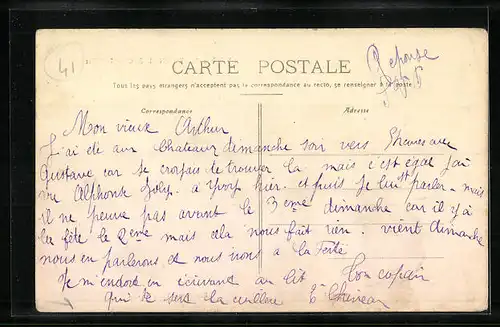 41
Reponse
CARTE POSTALE
Tous les pays étrangers n'acceptent pas la correspondance au recto, se renseigner à la poste
Correspondance
Adresse
Mon vieux Arthur
J'ai été aux Chateaux dimanche soir vers avec
Gustave car je croyais te trouver la mais c'est égal j'ai
vu Alphonse hier. et puis je lui parler - mais
il ne peuve pas avant le 3eme dimanche car il y a
la fête le 2eme mais cela nous fait rien. vient dimanche
nous en parlerons et nous irons a La Ferté
Je m'endors en écrivant au lit Ton copain
qui te sert la cuillère